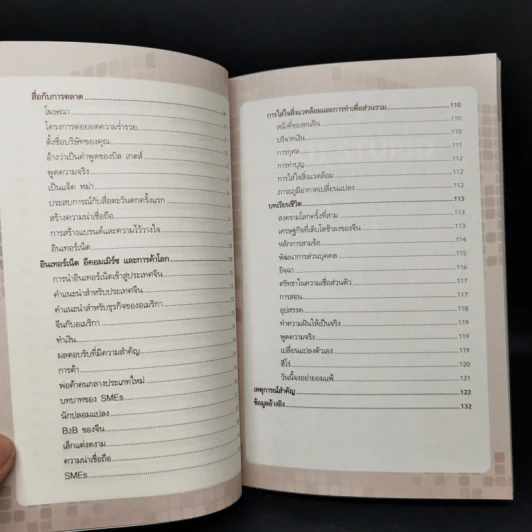 สื่อกับการตลาด
โฆษณา
โครงการต่อยอดความร่ำรวย
ตั้งชื่อบริษัทของคุณ
อ้างว่าเป็นคำพูดของบิล เกตส์
พูดความจริง
เป็นแจ็ค หม่า
ประสบการณ์กับสื่อตะวันตกครั้งแรก
สร้างความน่าเชื่อถือ
การสร้างแบรนด์และความไว้วางใจ
อินเทอร์เน็ต
อินเทอร์เน็ต อีคอมเมิร์ซ และการค้าโลก
การนำอินเทอร์เน็ตเข้าสู่ประเทศจีน
คำแนะนำสำหรับประเทศจีน
คำแนะนำสำหรับธุรกิจของอเมริกา
จีนกับอเมริกา
ทำเงิน
ผลตอบรับที่มีความสำคัญ
การค้า
พ่อค้าคนกลางประเภทใหม่
บทบาทของ SMEs
นักปลอมแปลง
B2B ของจีน
เล็กแต่งดงาม
ความน่าเชื่อถือ
SMEs
การใส่ใจสิ่งแวดล้อมและการทำเพื่อส่วนรวม 110
หน้าที่ของคนจีน 110
บริจาคเงิน 110
การกุศล 111
การทำบุญ 112
การใส่ใจสิ่งแวดล้อม 112
ภาวะภูมิอากาศเปลี่ยนแปลง 112
บทเรียนชีวิต 113
สงครามโลกครั้งที่สาม 113
เศรษฐกิจที่เติบโตช้าลงของจีน 113
หลักการสามข้อ 114
พัฒนาการส่วนบุคคล 115
อิจฉา 116
ศรัทธาในความเชื่อส่วนตัว 117
การสอน 117
อุปสรรค 117
ทำความฝันให้เป็นจริง 118
พูดความจริง 119
เปลี่ยนแปลงตัวเอง 119
ฮีโร่ 120
วันนี้จงอย่ายอมแพ้ 121
เหตุการณ์สำคัญ 122
ข้อมูลอ้างอิง 132